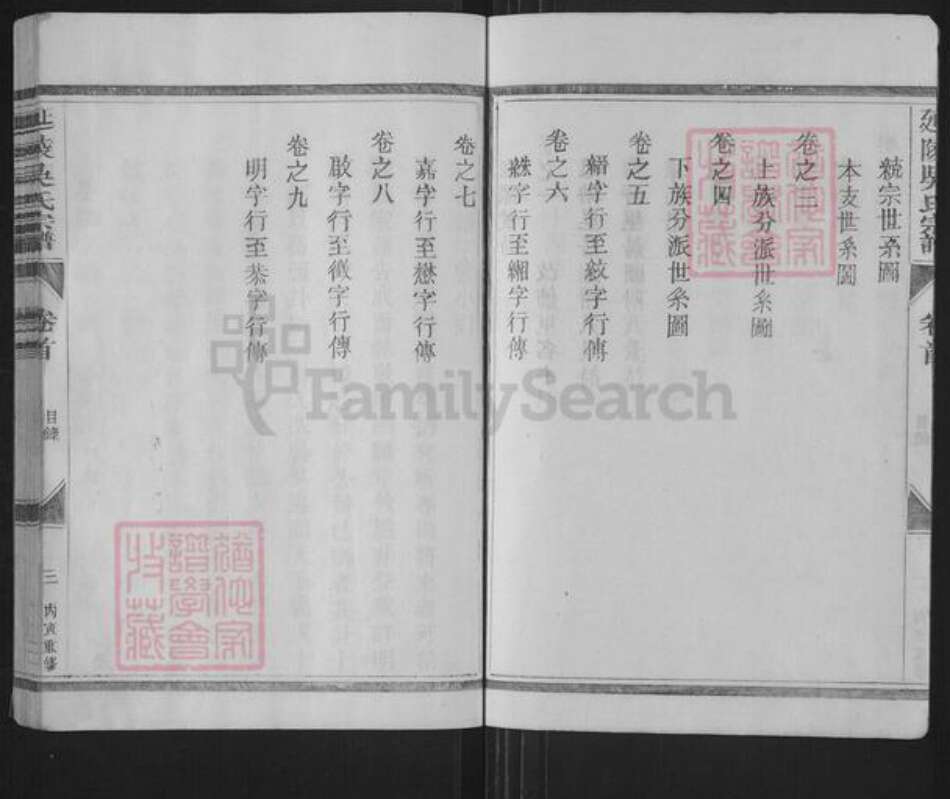 延陵吳氏宗譜
卷首
統宗世系圖
本支世系圖
卷之三
上族分派世系圖
卷之四
下族分派世系圖
卷之五
縉字行至敘字行傳
卷之六
字行至緗字行傳
卷之七
嘉字行至懋字行傳
卷之八
啟字行至徵字行傳
卷之九
明字行至恭字行傳
延陵吳氏宗譜
卷首
目錄
三
丙寅重修
譜學會
FamilySearch